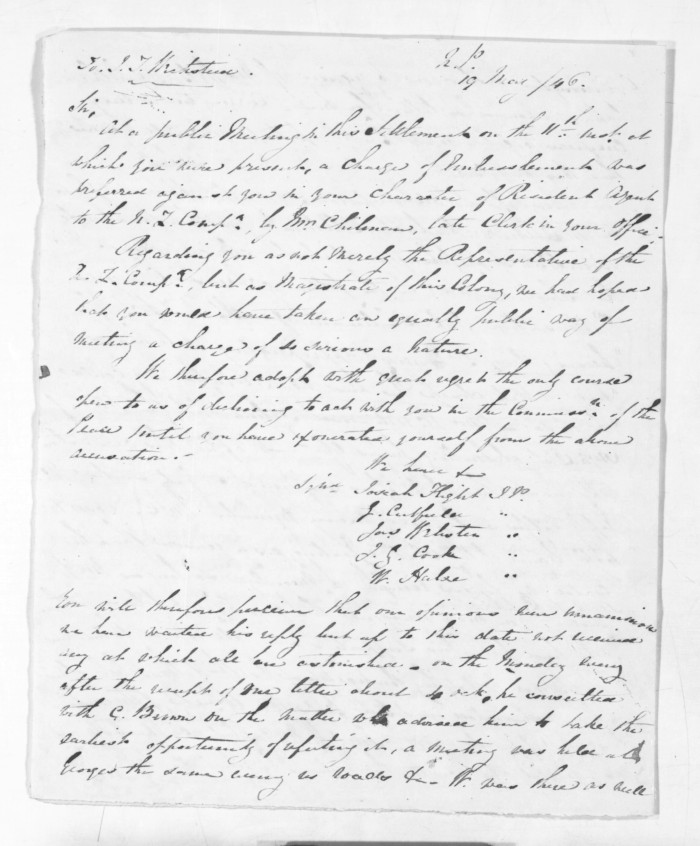 N.P.
19 May /46.
To J. T. Wicksteed.
Sir,
At a public Meeting in this Settlement on the 11th inst. at
which you were present, a charge of Embezzlement was
preferred against you in your character of Resident Agent
to the N. Z. Compy, by Mr Chilman, late Clerk in your office.
Regarding you as not merely the Representative of the
N. Z. Compy, but as Magistrate of this Colony, we had hoped
that you would have taken an equally public way of
meeting a charge of so serious a nature.
We therefore adopt with great regret the only course
open to us of declining to act with you in the Commissn of the
Peace until you have exonerated yourself from the above
accusation.-
We have &
Signed Josiah Flight J.P.
G. Cutfield "
Jas Webster "
J. G. Cooke "
W. Halse "
You will therefore perceive that our opinions were unanimous
we have waited his reply but up to this date not received
any at which all are astonished. on the Monday eveng
after the receipt of the letter about 4 o'ck, he consulted
with C. Brown on the matter who advised him to take the
earliest opportunity of refuting it, a meeting was held at
Georges the same eveng as roads &c. W. was there as well